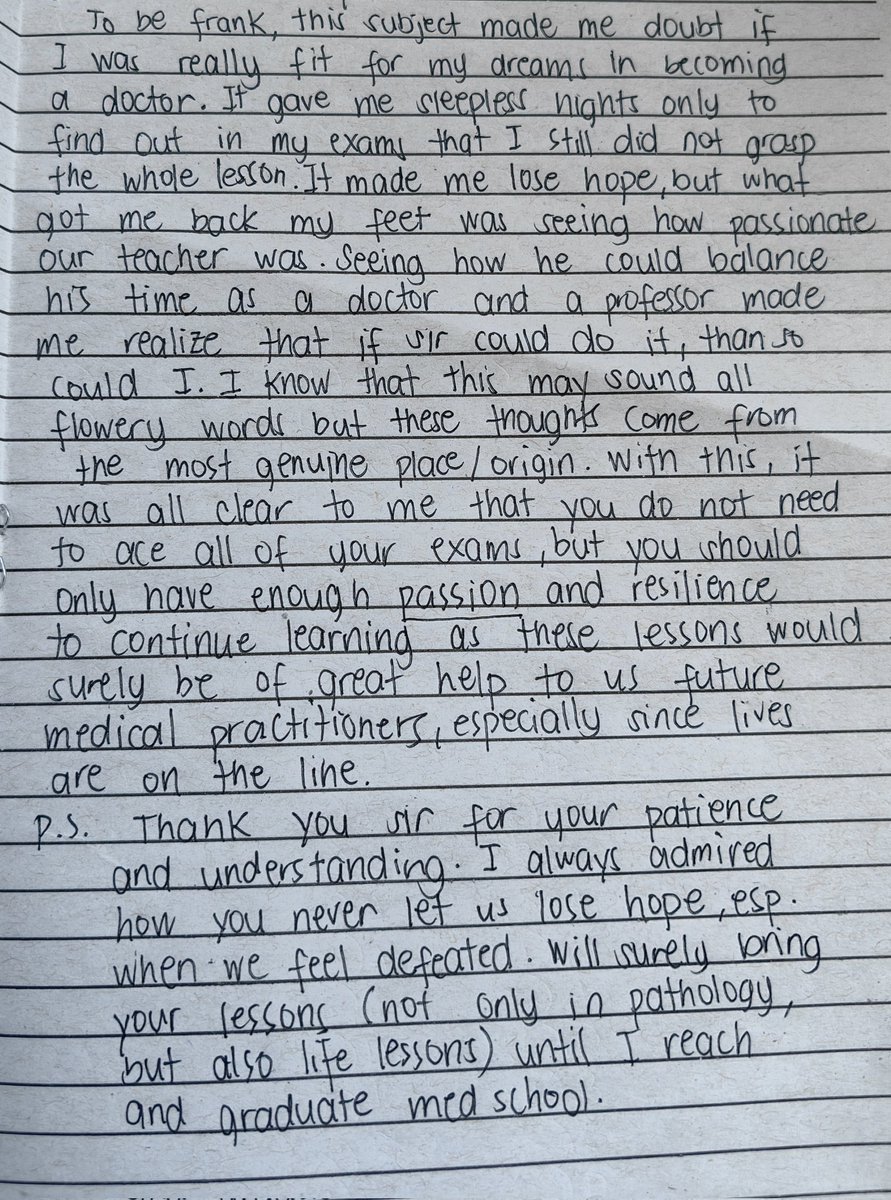 To be frank, this subject made me doubt if
I was really fit for my dreams in becoming
a doctor. It gave me sleepless nights only to
find out in my exams that I still did not grasp
the whole lesson. It made me lose hope, but what
got me back my feet was seeing how passionate
our teacher was. Seeing how he could balance
his time as a doctor and a professor made
me realize that if sir could do it, than so
could I. I know that this may sound all
flowery words but these thoughts come from
the most genuine place/origin. With this, it
was all clear to me that you do not need
to ace all of your exams, but you should
only have enough passion and resilience
to continue learning as these lessons would
surely be of great help to us future
medical practitioners, especially since lives
are on the line.
P.S. Thank you sir for your patience
and understanding. I always admired
how you never let us lose hope, esp.
when we feel defeated. Will surely bring
your lessons (not only in pathology,
but also life lessons) until I reach
and graduate med school.